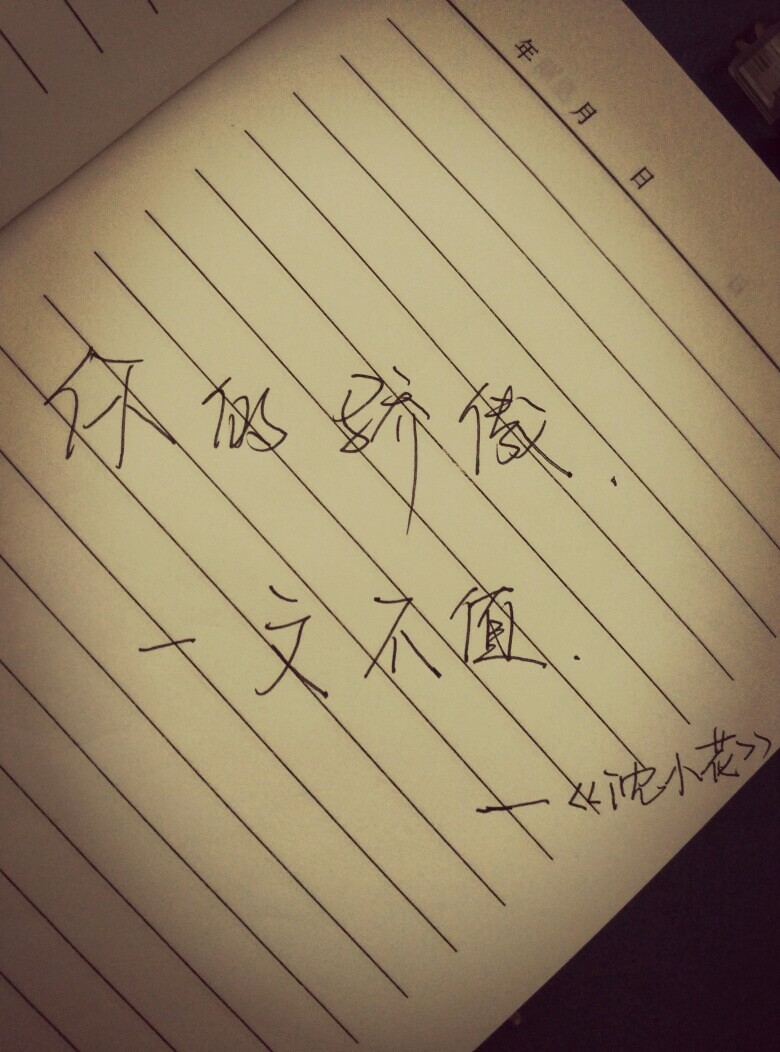 年 月 日
你的骄傲.
一文不值.
—《沈小花》